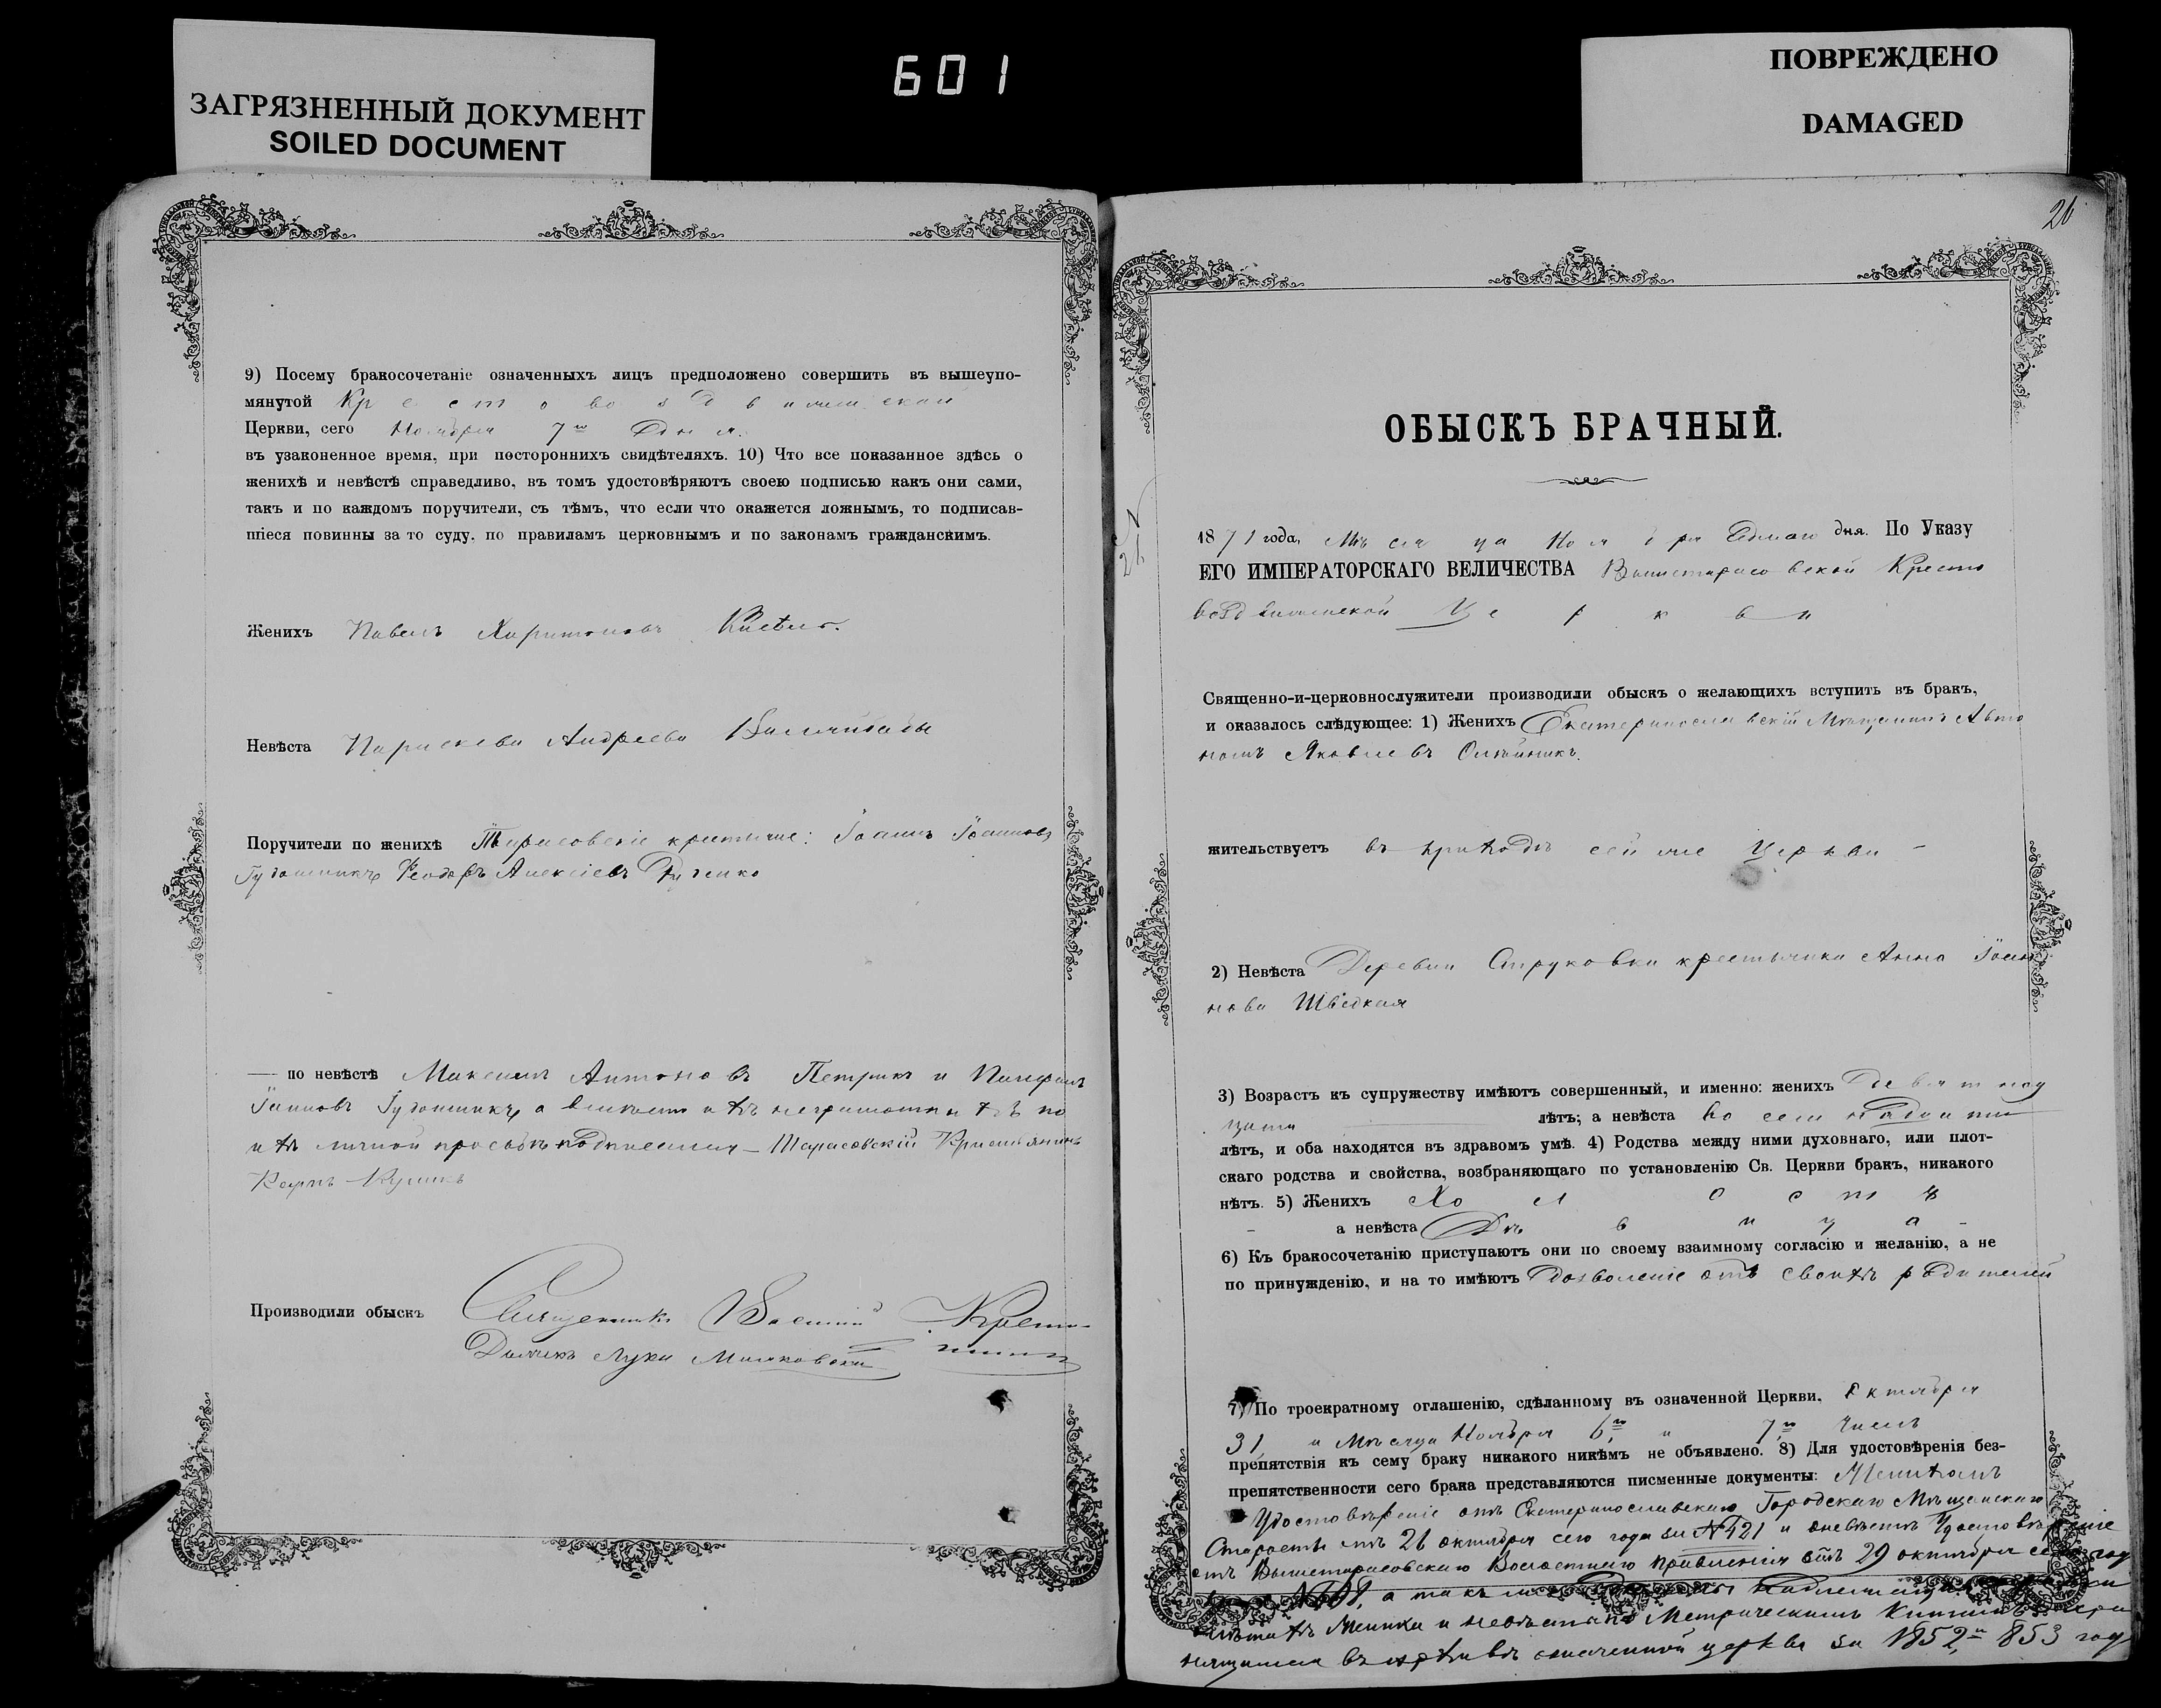 ЗАГРЯЗНЕННЫЙ ДОКУМЕНТ
SOILED DOCUMENT
601
ПОВРЕЖДЕНО
DAMAGED
9) Посему бракосочетаніе означенныхъ лицъ предположено совершить въ вышеупо-
мянутой Крестовоздвиженской
Церкви, сего Ноября 7го дня.
въ узаконенное время, при постороннихъ свидѣтеляхъ. 10) Что все показанное здѣсь о
женихѣ и невѣстѣ справедливо, въ томъ удостовѣряютъ своею подписью какъ они сами,
такъ и по каждомъ поручители, съ тѣмъ, что если что окажется ложнымъ, то подписав-
шіеся повинны за то суду, по правиламъ церковнымъ и по законамъ гражданскимъ.
Женихъ Павелъ Харитоновъ
Невѣста Параскева Андреева
Поручители по женихѣ Тарасовскіе крестьяне: Іоаннъ Іоанновъ
Ѳеодоръ Алексіевъ
— по невѣстѣ Максимъ Антоновъ Петрикъ и
Іоанновъ а вмѣсто ихъ неграмотныхъ по
ихъ личной просьбѣ подписался — Тарасовскій Крестьянинъ
Карпъ
Производили обыскъ Священникъ Василій
Дьячекъ Лука
26
26
ОБЫСКЪ БРАЧНЫЙ.
1871 года, Мѣсяца Ноября седмаго дня. По Указу
ЕГО ИМПЕРАТОРСКАГО ВЕЛИЧЕСТВА Вышетарасовской Кресто
воздвиженской Церкви
Священно-и-церковнослужители производили обыскъ о желающихъ вступить въ бракъ,
и оказалось слѣдующее: 1) Женихъ Екатеринославскій Мѣщанинъ Авто
номъ Яковлевъ Олѣйникъ.
жительствуетъ въ приходѣ сей же Церкви
2) Невѣста Деревни Струковки крестьянка Анна Іоан
нова Шведкая
3) Возрастъ къ супружеству имѣютъ совершенный, и именно: женихъ Девятнад
цати лѣтъ; а невѣста восемнадцати
лѣтъ, и оба находятся въ здравомъ умѣ. 4) Родства между ними духовнаго, или плот-
скаго родства и свойства, возбраняющаго по установленію Св. Церкви бракъ, никакого
нѣтъ. 5) Женихъ Холостъ
а невѣста Дѣвица
6) Къ бракосочетанію приступаютъ они по своему взаимному согласію и желанію, а не
по принужденію, и на то имѣютъ дозволеніе отъ своихъ родителей
7) По троекратному оглашенію, сдѣланному въ означенной Церкви, Октября
31 и Мѣсяца Ноября 6го и 7го числъ
препятствія къ сему браку никакого никѣмъ не объявлено. 8) Для удостовѣренія без-
препятственности сего брака представляются писменные документы: Женихомъ
Удостовѣреніе отъ Екатеринославскаго Городскаго Мѣщанскаго
Старосты отъ 26 октября сего года за №421 и невѣстъ Удостовѣреніе
отъ Вышетарасовскаго Волостнаго правленія отъ 29 октября сего года
а такъ
лѣтахъ жениха и невѣсты по Метрическимъ Книгамъ хра
нящимся въ архивѣ означенной церкви за 1852 и 853 год